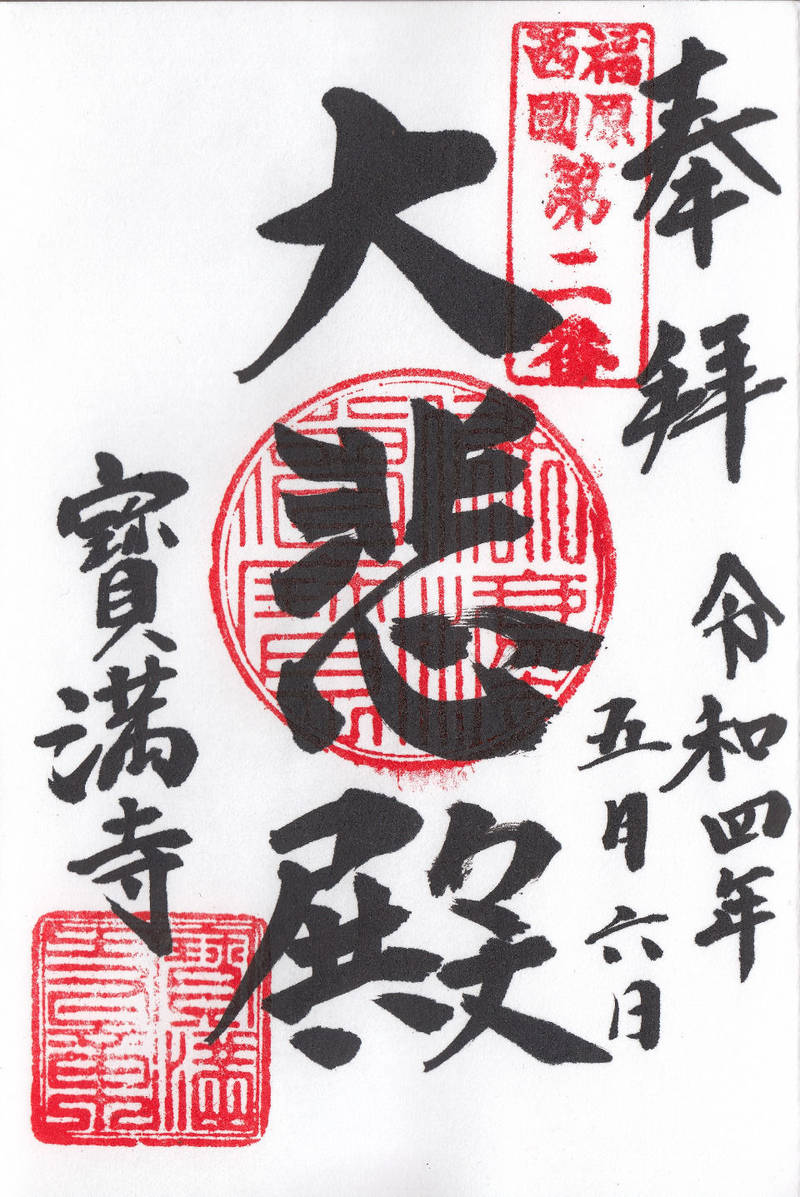 奉拜
福原
西國
第二番
令和四年
五月六日
大悲殿
寶満寺